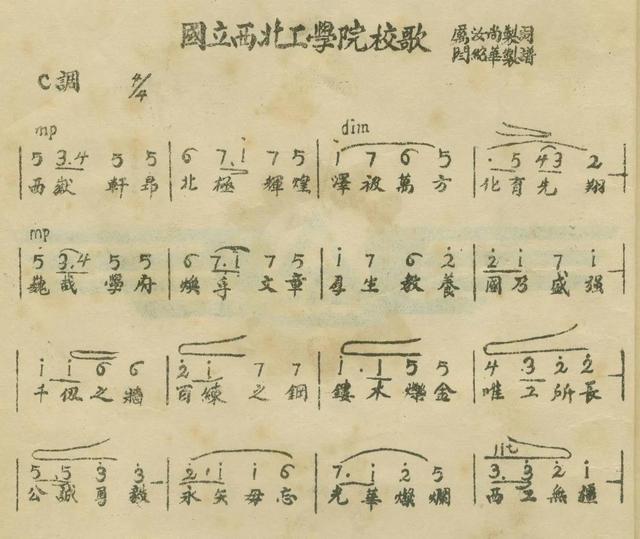 國立西北工學院校歌
厲汝尚製詞
閆紹華製譜
C調 4/4
mp dim
5 3.4 5 5 | 6 7.i 7 5 | i 7 6 5 | . 5 4 3 2
西嶽軒昂 北極輝煌 澤被萬方 化育先翔
mp
5 3.4 5 5 | 6 7.i 7 5 | i 7 6 2 | 2 i 7 i
巍哉學府 煥乎文章 厚生教養 國乃盛强
i i 6 6 | 2 i 7 7 | i . i 5 5 | 4 .3 2 2
千仭之牆 百練之鋼 鏤木爍金 唯工所長
lit
5 .5 3 3 | 2 . i i 6 | 7. i 2 5 | 3.3 2 i
公誠勇毅 永矢毋忘 光華燦爛 西工無疆